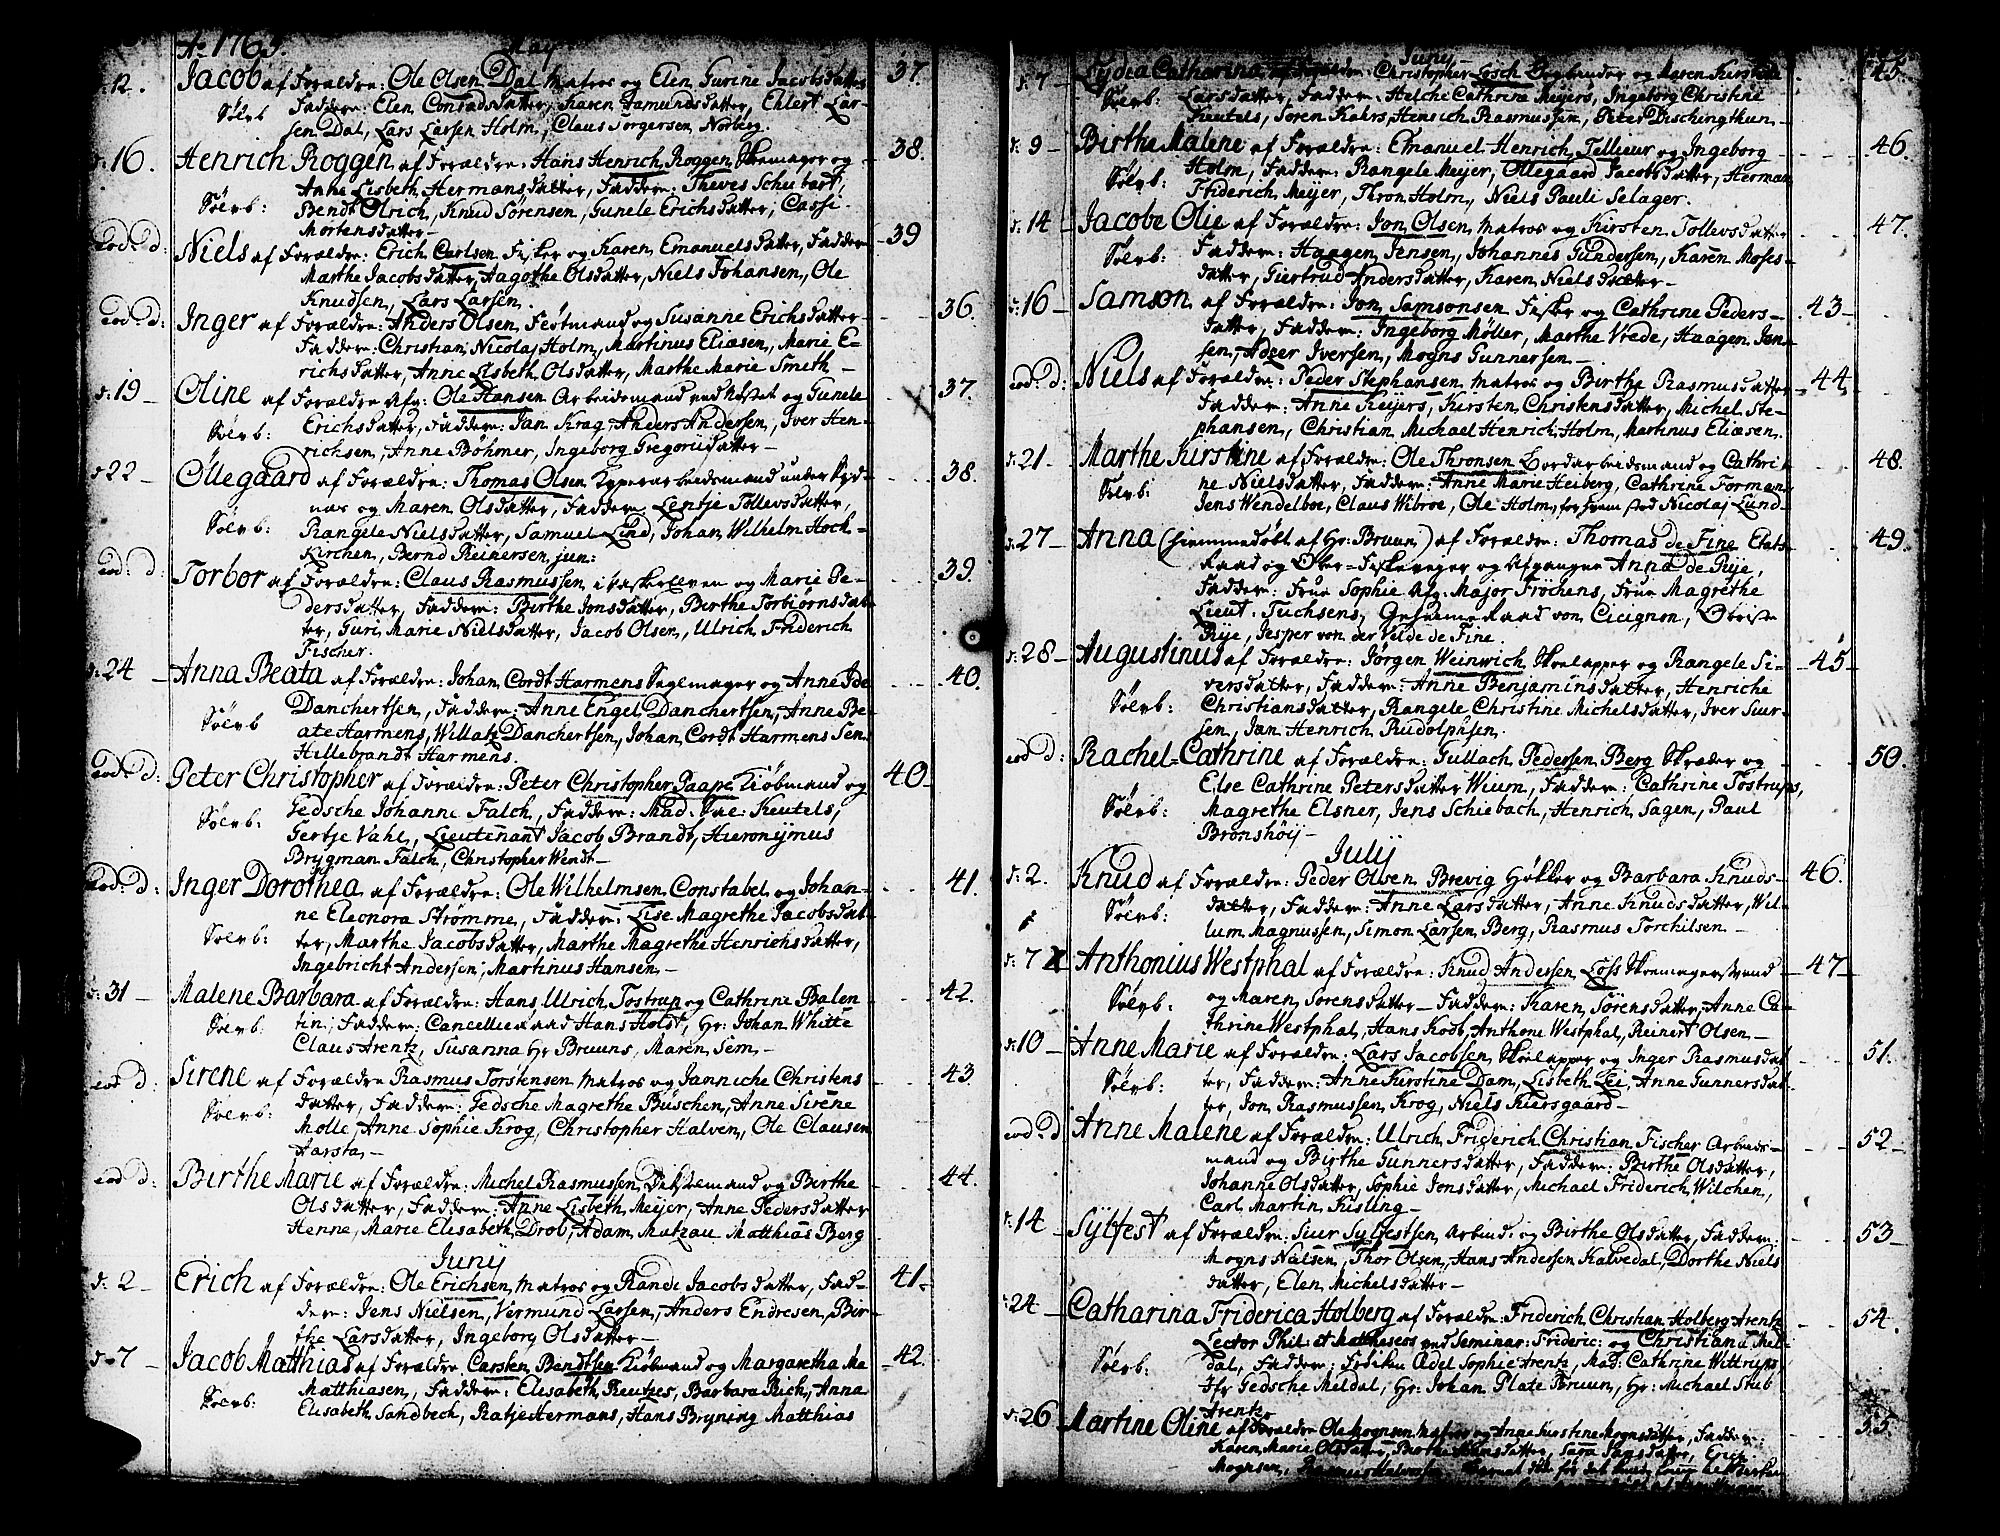 Ao 1765. May
d: 12. Jacob af Forældre: Ole Olsen Dal Matros og Elen Gurine Jacobsdatter 37
Sølvb Faddere: Elen Conradsdatter, Karen Jamundsdatter, Ehlert Lar-
sen Dal, Lars Larsen Holm, Claus Jørgensen Norberg.
d: 16. Henrich Roggen af Forældre: Hans Henrich Roggen Skomager og 38.
Anne Lisbeth Hermansdatter, Faddere: Theves Schubart,
Sølvb: Bendt Olrich, Knud Sørensen, Gunele Erichsdatter, Cassi
Mortensdatter
eod: d: Niels af Forældre: Erich Carlsen Fisker og Karen Emanuelsdatter, Faddere 39
Marthe Jacobsdatter, Aagothe Olsdatter, Niels Johansen, Ole
Knudsen, Lars Larsen.
eod: d: Inger af Forældre: Anders Olsen, Festmand og Susanne Erichsdatter 36.
Faddere: Christian Nicolaj Holm, Martinus Eliæsen, Marie E-
richsdatter, Anne Lisbeth Olsdatter, Marthe Marie Smeth
d: 19 Oline af Forældre Afg: Ole Hansen Arbeidsmand ved og Gunele 37.
Sølvb: Erichsdatter, Faddere: Jan Krag, Anders Andersen, Iver Hen-
richsen, Anne Bøhmer, Ingeborg Gregoriidatter
d: 22 Ollegaard af Forældre: Thomas Olsen Kyperarbeidsmand under 38.
og Maren Olsdatter, Faddere Lentje Tollevsdatter,
Sølvb: Rangele Nielsdatter, Samuel Lind, Johan Wilhelm Hoch-
Kirchen, Bernd Reinersen jun:
eod: d: Torbor af Forældre: Claus Rasmussen i og Marie Pe- 39.
dersdatter, Faddere: Birthe Jonsdatter, Birthe Torbiørnsdat-
ter, Guri Marie Nielsdatter, Jacob Olsen, Ulrich Friderich
Fischer.
d: 24 Anna Beata af Forældre: Johan Cordt Harmens Seglmager og Anne Ide 40.
Sølvb Danchertsen, Faddere: Anne Engel Danchertsen, Anne Be-
ate Harmens, Willatz Danchertsen, Johan Cordt Harmens Sen
Hillebrandt Harmens.
eod: d: Peter Christopher af Forældre: Peter Christopher Paape Kiøbmand og 40
Sølvb: Gedsche Johanne Falch, Faddere: Mad. Sal: Keutels,
Gertje Vahl, Lieutenant Jacob Brandt, Hieronymus
Brygman Falch, Christopher Wendt
eod: d: Inger Dorothea af Forældre: Ole Wilhelmsen Constabel og Johan- 41.
Sølvb: ne Eleonora Strømme, Faddere: Lise Magrethe Jacobsdat-
ter, Marthe Jacobsdatter, Marthe Magrethe Henrichsdatter,
Ingebricht Andersen, Martinus Hansen
d: 31 Malene Barbara af Forældre: Hans Ulrich Tostrup og Cathrine Balen 42.
Sølvb: tin, Faddere: Cancellieraad Hans Holst, Hr: Johan Whitte
Claus Arentz, Susanna Hr Bruuns, Maren Sem
eod d: Sirene af Forældre Rasmus Torstensen Matros og Janniche Christens 43.
Sølvb: datter, Faddere: Gedsche Magrethe Büschen, Anne Sirene
Molle, Anne Sophie Krog, Christopher Halven, Ole Clausen
Aarsta
eod d: Birthe Marie af Forældre: Michel Rasmussen og Birthe 44.
Olsdatter, Faddere: Anne Lisbeth Meijer, Anne Pedersdatter
Henne, Marie Elisabeth Drob, Adam Matzau Matthias Berg
Junij
d: 2 Erich af Forældre: Ole Erichsen Matros og Rande Jacobsdatter, Fad- 41
dere: Jens Nielsen, Vermund Larsen, Anders Endresen, Bir-
the Larsdatter, Ingeborg Olsdatter
d: 7 Jacob Matthias af Forældre Carsten Bendtsen Kiøbmand og Margaretha Ma 42.
Sølvb: Matthiasen, Faddere: Elisabeth Reutzes, Barbara Rich, Anna
Elisabeth Sandbech, Ratje Hermans, Hans Bryning Matthias
Junij
d: 7 Lydia Catharina af Forældre: Christopher Losch Bogbinder og Maren Kirstine 45.
Sølvb: Larsdatter, Faddere: Helche Cathrine Meyers, Ingeborg Christine
Keutels, Søren Kahrs, Henrich Rasmussen, Peter Dischingthun
d: 9 Birthe Malene af Forældre: Emanuel Henrich Tellieur og Ingeborg 46.
Sølvb: Holm, Faddere: Rangele Meyer, Ollegaard Jacobsdatter, Herman
Friderich Meyer, Thron Holm, Niels Pauli Selager.
d: 14 Jacobe Olie af Forældre: Jon Olsen Matros og Kirsten Tollevsdatter 47.
Sølvb: Faddere: Haagen Jensen, Johannes Gundersen, Karen Moses-
datter, Giertrud Andersdatter, Karen Nielsdatter
d: 16 Samson af Forældre: Jon Samsonsen Fisker og Cathrine Peders- 43
datter, Faddere: Ingeborg Møller, Marthe Vrede, Haagen Jen-
sen, Adzer Iversen, Mogns Gunnersen
eod: d: Niels af Forældre: Peder Stephansen Matros og Birthe Rasmusdatter 44
Faddere: Anne Keijers, Kirsten Christensdatter, Michel Ste-
phansen, Christian Michael Henrich Holm, Martinus Eliæsen.
d: 21 Marthe Kirstine af Forældre: Ole Thronsen Bordarbeidsmand og Cathri- 48.
Sølvb: ne Nielsdatter, Faddere: Anne Marie Heiberg, Cathrine Forman
Jens Wendelboe, Claus Wibroe, Ole Holm, for ham stod Nicolaj Lund
d: 27 Anna (hiemmedøbt af Hr: Bruun) af Forældre: Thomas de Fine Etats- 49.
Raad og Ober-Fiskevrager og Afgangne Anna de Rije,
Faddere: Frue Sophie Afg: Major Frøchens, Frue Magrethe
Lieut. Tuchsens, Geheimeraad von Cicignon, Obrist
Rije, Jesper von der Velde de Fine.
d: 28 Augustinus af Forældre: Jørgen Weinwich Skoelapper og Rangele Si- 45
versdatter, Faddere: Anne Benjaminsdatter, Henriche
Sølvb: Christiansdatter, Rangele Christine Michelsdatter, Iver Siur-
sen, Jan Henrich Rudolphsen.
eod d: Rachel-Cathrine af Forældre: Gullach Pedersen Berg Skræder og 50.
Else Cathrine Petersdatter Wium, Faddere: Cathrine Tostrups,
Sølvb: Magrethe Elsner, Jens Schiebach, Henrich Sagen, Paul
Bronshöij
Julij
d: 2. Knud af Forældre: Peder Olsen Brevig Høkker og Barbara Knuds- 46.
Sølvb: datter, Faddere: Anne Larsdatter, Anne Knudsdatter, Wil-
lum Magnussen, Simon Larsen Berg, Rasmus Torchilsen
d: 7 Anthonius Westphal af Forældre: Knud Andersen Löss Skomagersvend 47
Sølvb: og Maren Sorensdatter Faddere: Karen Sørensdatter, Anne Ca-
thrine Westphal, Hans Kodt, Anthone Westphal, Reinert Olsen
d: 10 Anne Marie af Forældre: Lars Jacobsen Skoelapper og Inger Rasmusdat 51.
Sølvb: ter, Faddere: Anne Kirstine Dam, Lisbeth Lei, Anne Gunnersdat-
ter, Jon Rasmussen Krog, Niels Kiersgaard
eod: d Anne Malene af Forældre: Ulrich Friderich Christian Fischer Arbeids- 52
mand og Birthe Gunnersdatter, Faddere: Birthe Olsdatter,
Johanne Olsdatter, Sophie Jonsdatter, Michael Friderich Wilchen,
Carl Martin Kisling
d: 14 Sylfest af Forældre: Siur Sylfestsen Arbmd: og Birthe Olsdatter, Faddere: 53
Mogns Nilsen, Thor Olsen, Hans Andersen Kalvedal, Dorthe Niels
datter, Elen Michelsdatter
d: 24 Catharina Friderica Holberg af Forældre: Friderich Christian Holberg Arentz 54.
Lector Phil: et Matheseos ved Seminar: Frideric: og Christiana Mel-
Sølvb: dal, Faddere: Frøiken Adel Sophie Arentz, Mad: Cathrine Wittrups,
Jfr Gedsche Meldal, Hr: Johan Plate Bruun, Hr: Michael Stub
Arentz
d: 26 Martine Oline af Forældre Ole Mognsen Matros og Anne Kirstine Mognsdatter, Faddere: 55.
Karen Marie Olsdatter, Birthe Hansdatter, Sara Jensdatter, Erich
Mognsen,